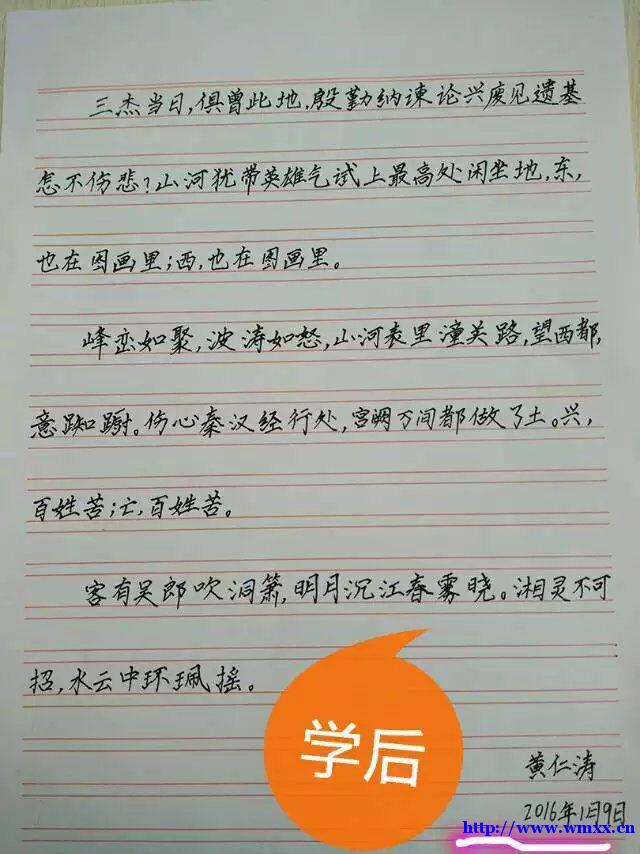 三杰当日,俱曾此地,殷勤纳谏论兴废见遗基
怎不伤悲?山河犹带英雄气试上最高处闲坐地,东,
也在图画里;西,也在图画里。
峰峦如聚,波涛如怒,山河表里潼关路,望西都,
意踟蹰。伤心秦汉经行处,宫阙万间都做了土。兴,
百姓苦;亡,百姓苦。
客有吴郎吹洞箫,明月沉江春雾晓。湘灵不可
招,水云中环珮摇。
学后
黄仁涛
2016年1月9日
http://www.wmxx.cn